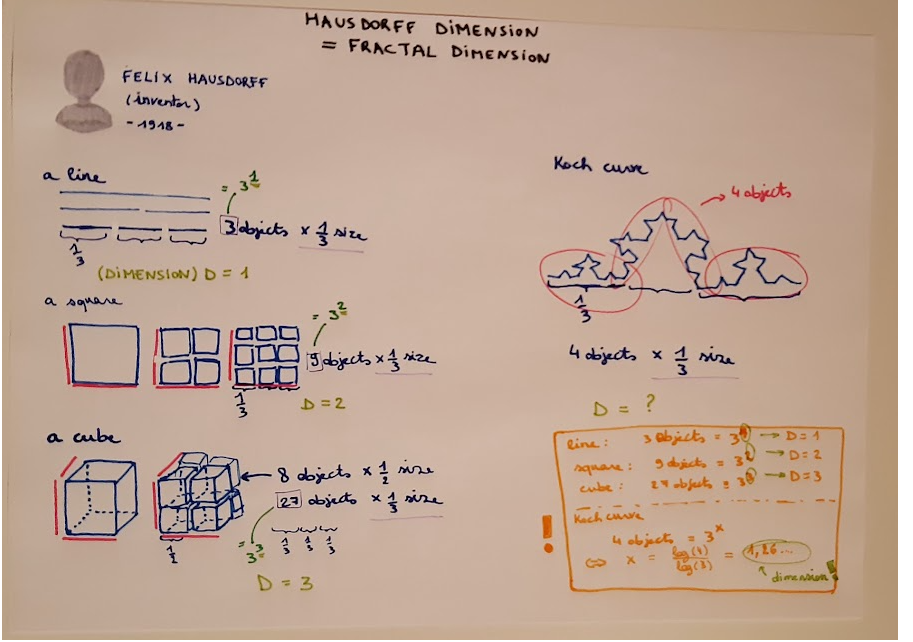 HAUSDORFF DIMENSION
= FRACTAL DIMENSION
FELIX HAUSDORFF
(inventor)
- 1918 -
a line
= 3^1
3 objects × 1/3 size
1/3
(DIMENSION) D = 1
a square
= 3^2
9 objects × 1/3 size
1/3
D = 2
a cube
8 objects × 1/2 size
27 objects × 1/3 size
1/3 1/3 1/3
1/2
= 3^3
D = 3
Koch curve
4 objects
1/3
4 objects × 1/3 size
D = ?
line: 3 objects = 3^1 → D = 1
square: 9 objects = 3^2 → D = 2
cube: 27 objects = 3^3 → D = 3
Koch curve
4 objects = 3^x
⇔ x = log(4)/log(3) = 1,26...
dimension!
!